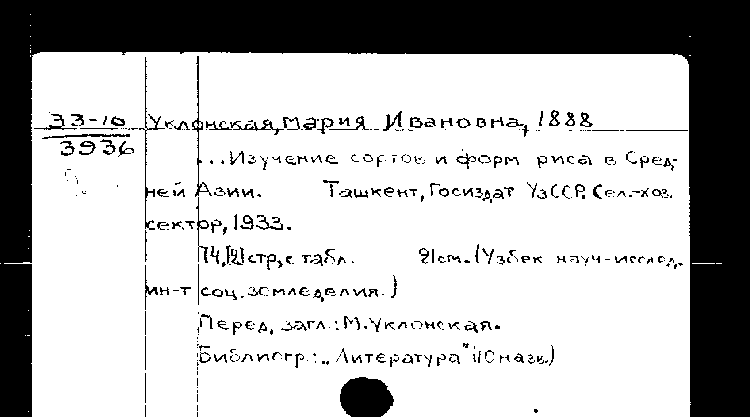 33-10 Уклонская, Мария Ивановна, 1888
3936
...Изучение сортов и форм риса в Сред-
ней Азии. Ташкент, Госиздат УзССР. Сел.-хоз.
сектор, 1933.
74,[2]стр, с табл. 21см. (Узбек науч-исслед.
ин-т соц. земледелия.)
Перед. загл.: М. Уклонская.
Библиогр.: „Литература" (10 назв.)